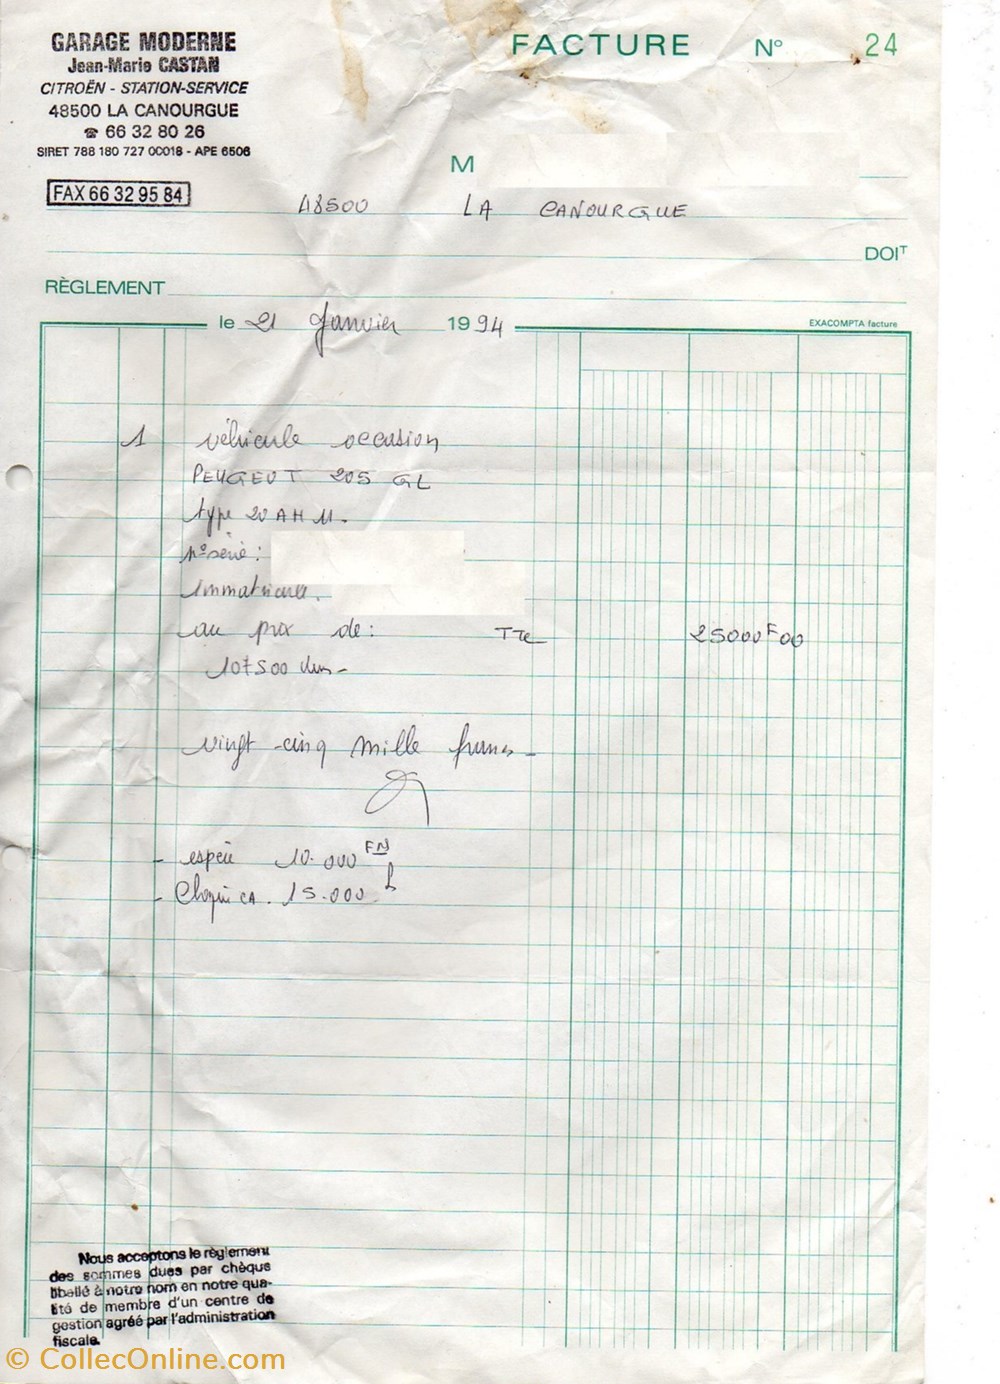 GARAGE MODERNE
Jean-Marie CASTAN
CITROËN - STATION-SERVICE
48500 LA CANOURGUE
☎ 66 32 80 26
SIRET 788 180 727 00018 - APE 6506
FAX 66 32 95 84
FACTURE N° 24
M
48500 LA CANOURGUE
DOIT
RÈGLEMENT
le 21 Janvier 1994
EXACOMPTA facture
1 véhicule occasion
PEUGEOT 205 GL
type 20 AH 11.
n° série :
immatricule.
au prix de : TTC 25000F00
107500 kms -
vingt-cinq mille francs -
- espèce 10.000 FN
- Chèque CA. 15.000
Nous acceptons le règlement
des sommes dues par chèque
libellé à notre nom en notre qua-
lité de membre d'un centre de
gestion agréé par l'administration
fiscale.
© CollecOnline.com